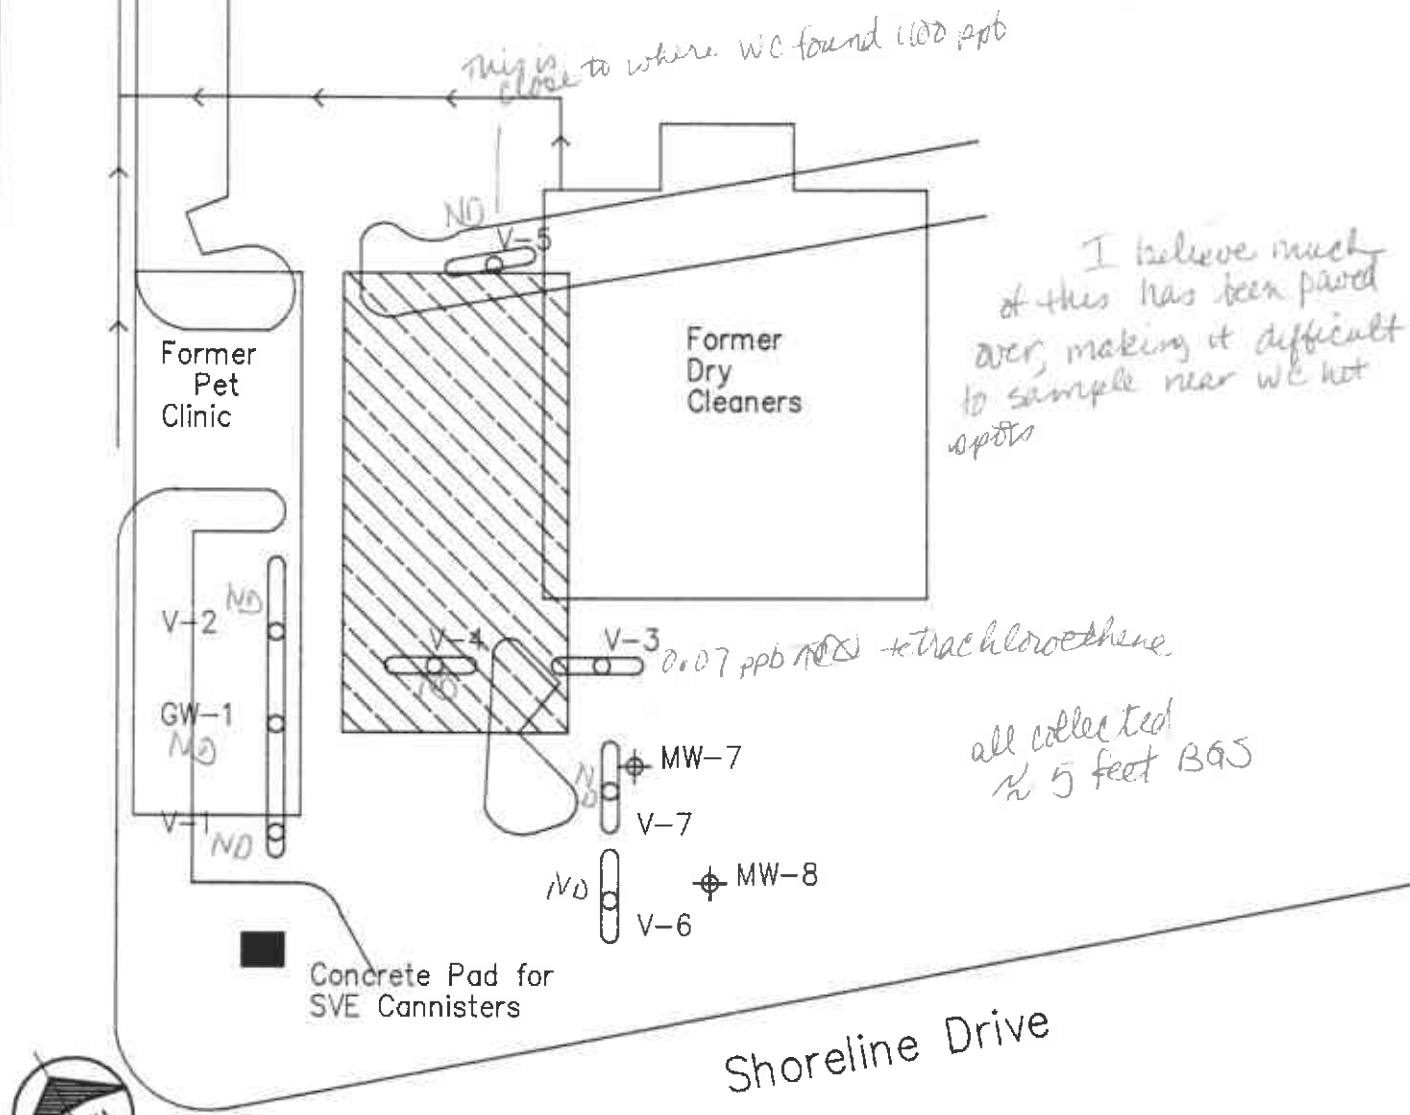 This is
close to where WC found 1100 ppb
ND
V-5
I believe much
of this has been paved
over, making it difficult
to sample near WC hot
spots
Former
Pet
Clinic
Former
Dry
Cleaners
ND
V-2
V-4
ND
V-3
0.07 ppb tetrachloroethene
GW-1
ND
all collected
≈ 5 feet BGS
MW-7
ND
V-7
V-1
ND
MW-8
ND
V-6
Concrete Pad for
SVE Cannisters
Shoreline Drive